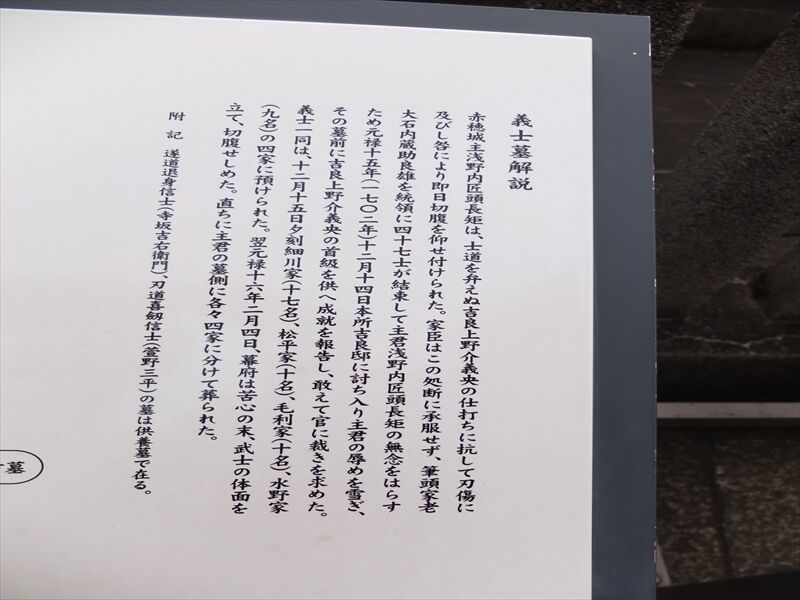 義士墓解説
赤穂城主浅野内匠頭長矩は、士道を弁えぬ吉良上野介義央の仕打ちに抗して刃傷に
及びし咎により即日切腹を仰せ付けられた。家臣はこの処断に承服せず、筆頭家老
大石内蔵助良雄を統領に四十七士が結束して主君浅野内匠頭長矩の無念をはらす
ため元禄十五年(一七〇二年)十二月十四日本所吉良邸に討ち入り主君の辱めを雪ぎ、
その墓前に吉良上野介義央の首級を供へ成就を報告し、敢えて官に裁きを求めた。
義士一同は、十二月十五日夕刻細川家(十七名)、松平家(十名)、毛利家(十名)、水野家
(九名)の四家に預けられた。翌元禄十六年二月四日、幕府は苦心の末、武士の体面を
立て、切腹せしめた。直ちに主君の墓側に各々四家に分けて葬られた。
附記 遂道退身信士(寺坂吉右衛門)、刃道喜剱信士(萱野三平)の墓は供養墓で在る。
墓